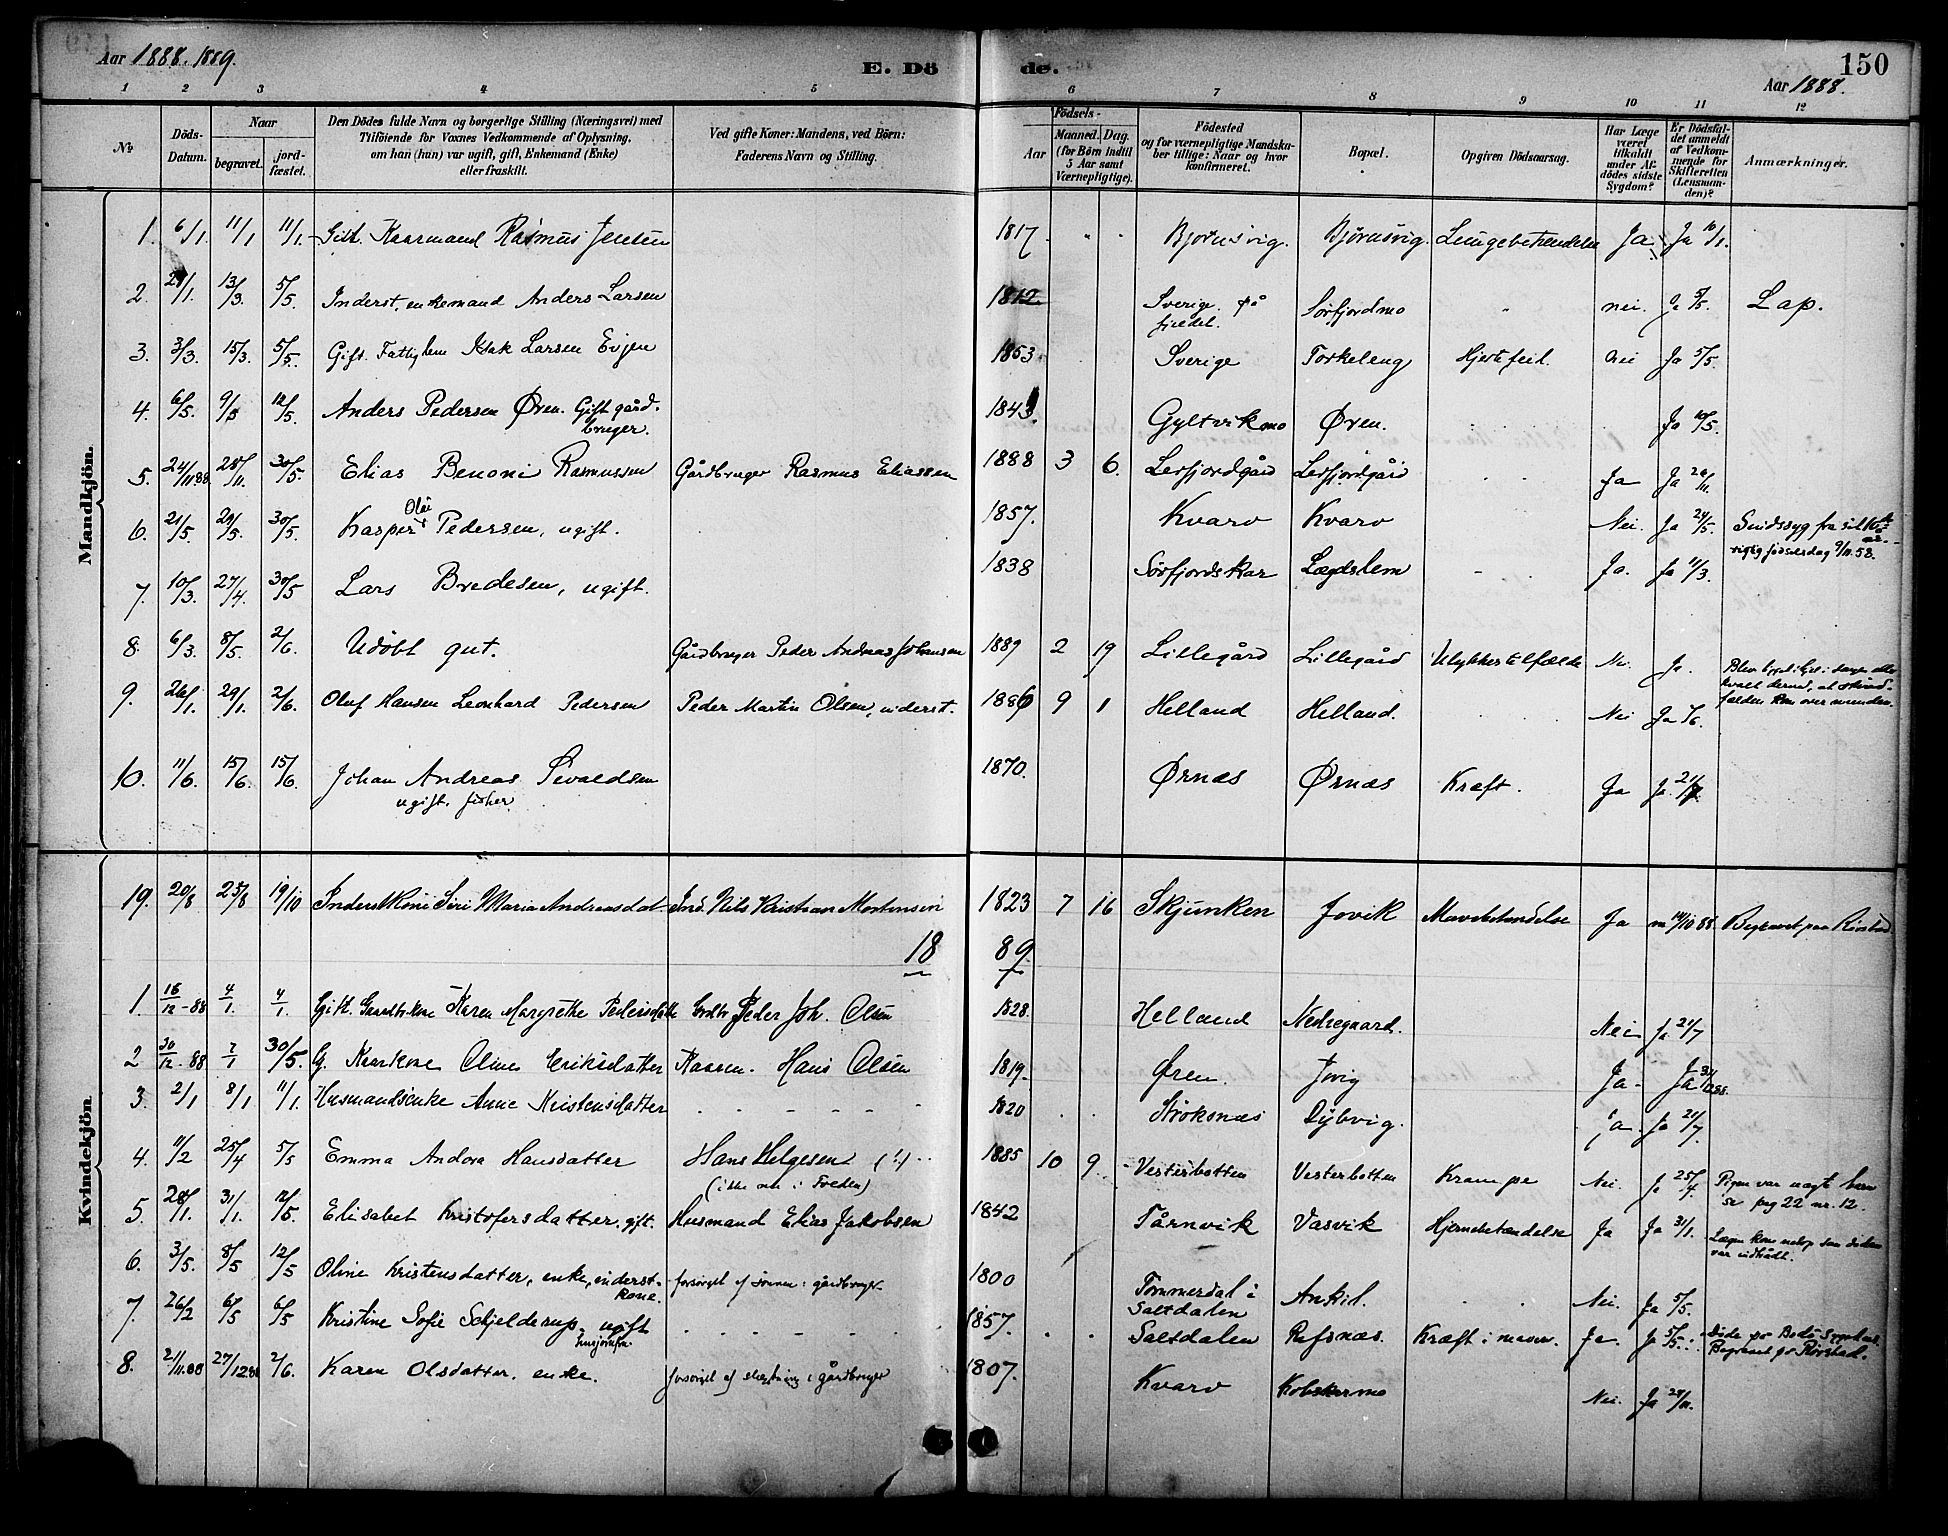 Aar 1888. 1889.
E. Dö de.
150
Aar 1888.
1 2 3 4 5 6 7 8 9 10 11 12
No
Döds-Datum.
Naar
begravet.
jordfæstet.
Den Dödes fulde Navn og borgerlige Stilling (Næringsvei) med
Tilföiende for Voxnes Vedkommende af Oplysning,
om han (hun) var ugift, gift, Enkemand (Enke)
eller fraskilt.
Ved gifte Koner: Mandens, ved Börn:
Faderens Navn og Stilling.
Födsels-
Aar
Maaned. Dag.
(for Börn indtil
5 Aar samt
Værnepligtige).
Födested
og for værnepligtige Mandskaber tillige: Naar og hvor
konfirmeret.
Bopæl.
Opgiven Dödsaarsag.
Har Læge
været
tilkaldt
under Afdödes sidste
Sygdom?
Er Dödsfaldet anmeldt
af Vedkommende for
Skifteretten
(Lensmanden)?
Anmærkninger.
Mandkjön.
1. 6/1. 11/1 11/1. Gift. Kaarmand Rasmus Jensen 1817. Bjørnsvig. Bjørnsvig. Lungebetændelse Ja. Ja 10/1.
2. 13/3. 5/5 Inderst, enkemand Anders Larsen 1812. Sverige. på fjeldet. Sørfjordmo nei. Ja 5/5. Lap.
3. 3/3. 15/3. 5/5. Gift. Fattiglem Isak Larsen Evjen 1853. Sverige Torkeleng Hjertefeil. Nei Ja 5/5.
4. 6/5. 9/5 12/5 Anders Pedersen Øren. Gift gårdbruger. 1843. Gyltvikmo Øren. Ja 10/5.
5. 24/11 88 28/11. 30/5. Elias Benoni Rasmussen Gårdbruger Rasmus Eliassen 1888 3 6. Leifjordgård Leifjordgård Ja Ja
6. 21/5. 29/5. 30/5. Kasper Olai Pedersen, ugift. 1857. Kvarv Kvarv Nei. Ja 24/5. Sindssyg fra sit
rigtig fødselsdag 9/11.58.
7. 10/3. 27/4. 30/5 Lars Bredesen, ugift. 1838 Sørfjordskar Lægdslem Ja. Ja 11/3.
8. 6/3. 8/5. 2/6. Udøbt gut. Gårdbruger Peder Andreas Johansen 1889 2 19 Lillegård Lillegård Ulykkestilfælde Nei. Ja.
9. 26/1. 29/1. 2/6. Oluf Hansen Leonhard Pedersen Peder Martin Olsen, inderst. 1886 9 1 Helland Helland. Nei
10. 11/6. 15/6. 15/6 Johan Andreas Sivaldsen ugift. fisker 1870. Ørnæs Ørnæs Kræft. Ja Ja.
Kvindekjön.
19. 20/8 23/8 19/10 Inderst Kone Siri Maria Andreasdat. Ind. Nils Kristian Mortensen 1823 7 16 Skjunken Jovik Mavebetændelse Ja 14/10 88. Begravet paa Rørstad
1889
1. 16/12-88 4/1. 4/1. Gift. Gaardbr.kone Karen Margrethe Pedersdatter Grdbr. Peder Joh. Olsen 1828. Helland Nedregaard. Nei Ja 21/7
2 30/12-88 7/1 30/5. G. Kaarkone Oline Eriksdatter Kaarm. Hans Olsen 1819. Øren. Jovig Ja. Ja
3. 2/1 8/1 11/1. Husmandsenke Anne Kristensdatter 1820 Stroksnæs Dybvig. ja. Ja 21/7.
4. 11/2 25/4 5/5 Emma Andora Hansdatter Hans Helgesen (!) 1885 10 9. Vesterbotten Vesterbotten Krampe Nei. Ja 25/4. Pigen var uægte barn
se pag 22 nr. 12.
5. 28/1. 31/1. 12/5. Elisabet Kristofersdatter, gift. Husmand Elias Jakobsen 1842 Tårnvik Vasvik Hjernebetændelse Ja Ja 31/1. Lægen kom netop som døden
var indtrådt.
6. 3/5. 8/5 12/5 Oline Kristensdatter, enke, inderstkone. forsørget af sønnen i gårdbruget 1800 Tømmerdal i Saltdalen Ankil. Nei. Ja 5/5.
7. 26/2 6/5 6/5 Kristine Sofie Schjelderup. ugift 1857. Saltdalen Refsnæs. Kræft i maven. Ja. Ja 5/5. Døde på Bodø Sygehus
Begravet på Rørstad.
8. 2/11.88 27/12.88 2/6. Karen Olsdatter, enke. forsørget af slægtning i gårdbruget 1807. Kvarv Kobskarmo Nei. Ja